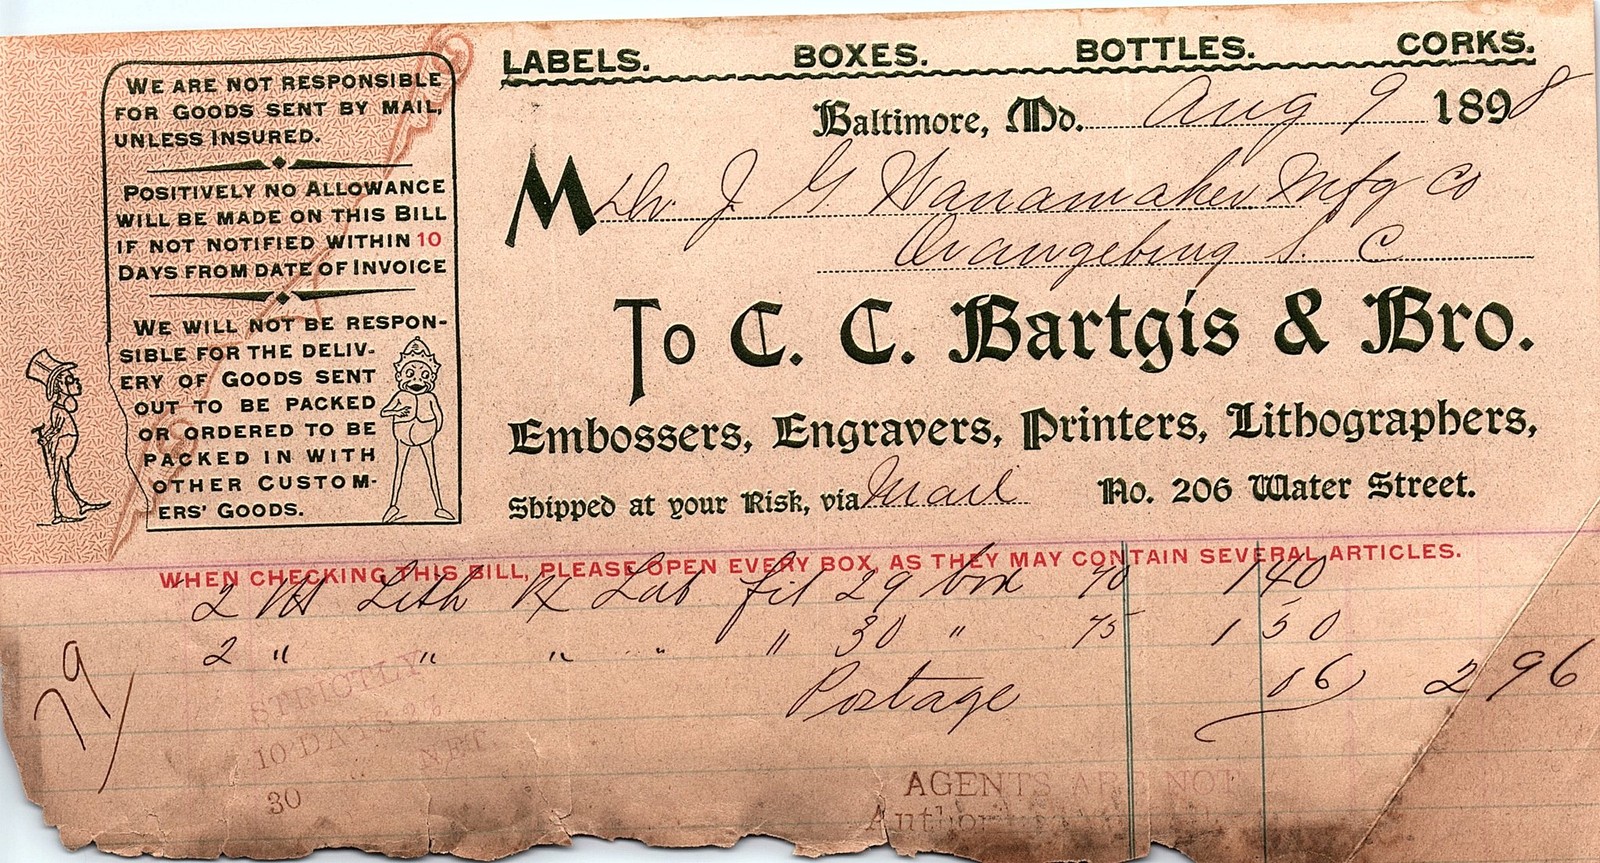 LABELS. BOXES. BOTTLES. CORKS.
Baltimore, Md. Aug 9 1898
M Dr. J. G. Wanamaker Mfg Co
Orangeburg S. C
To C. C. Bartgis & Bro.
Embossers, Engravers, Printers, Lithographers,
Shipped at your Risk, via Mail No. 206 Water Street.
WE ARE NOT RESPONSIBLE
FOR GOODS SENT BY MAIL,
UNLESS INSURED.
POSITIVELY NO ALLOWANCE
WILL BE MADE ON THIS BILL
IF NOT NOTIFIED WITHIN 10
DAYS FROM DATE OF INVOICE
WE WILL NOT BE RESPON-
SIBLE FOR THE DELIV-
ERY OF GOODS SENT
OUT TO BE PACKED
OR ORDERED TO BE
PACKED IN WITH
OTHER CUSTOM-
ERS' GOODS.
WHEN CHECKING THIS BILL, PLEASE OPEN EVERY BOX, AS THEY MAY CONTAIN SEVERAL ARTICLES.
2 Lith Lab fit 29 box 70 1 40
2 " " " " " 30 " 75 1 50
Postage 06 2 96
79
STRICTLY
10 DAYS
NET
30
AGENTS ARE NOT